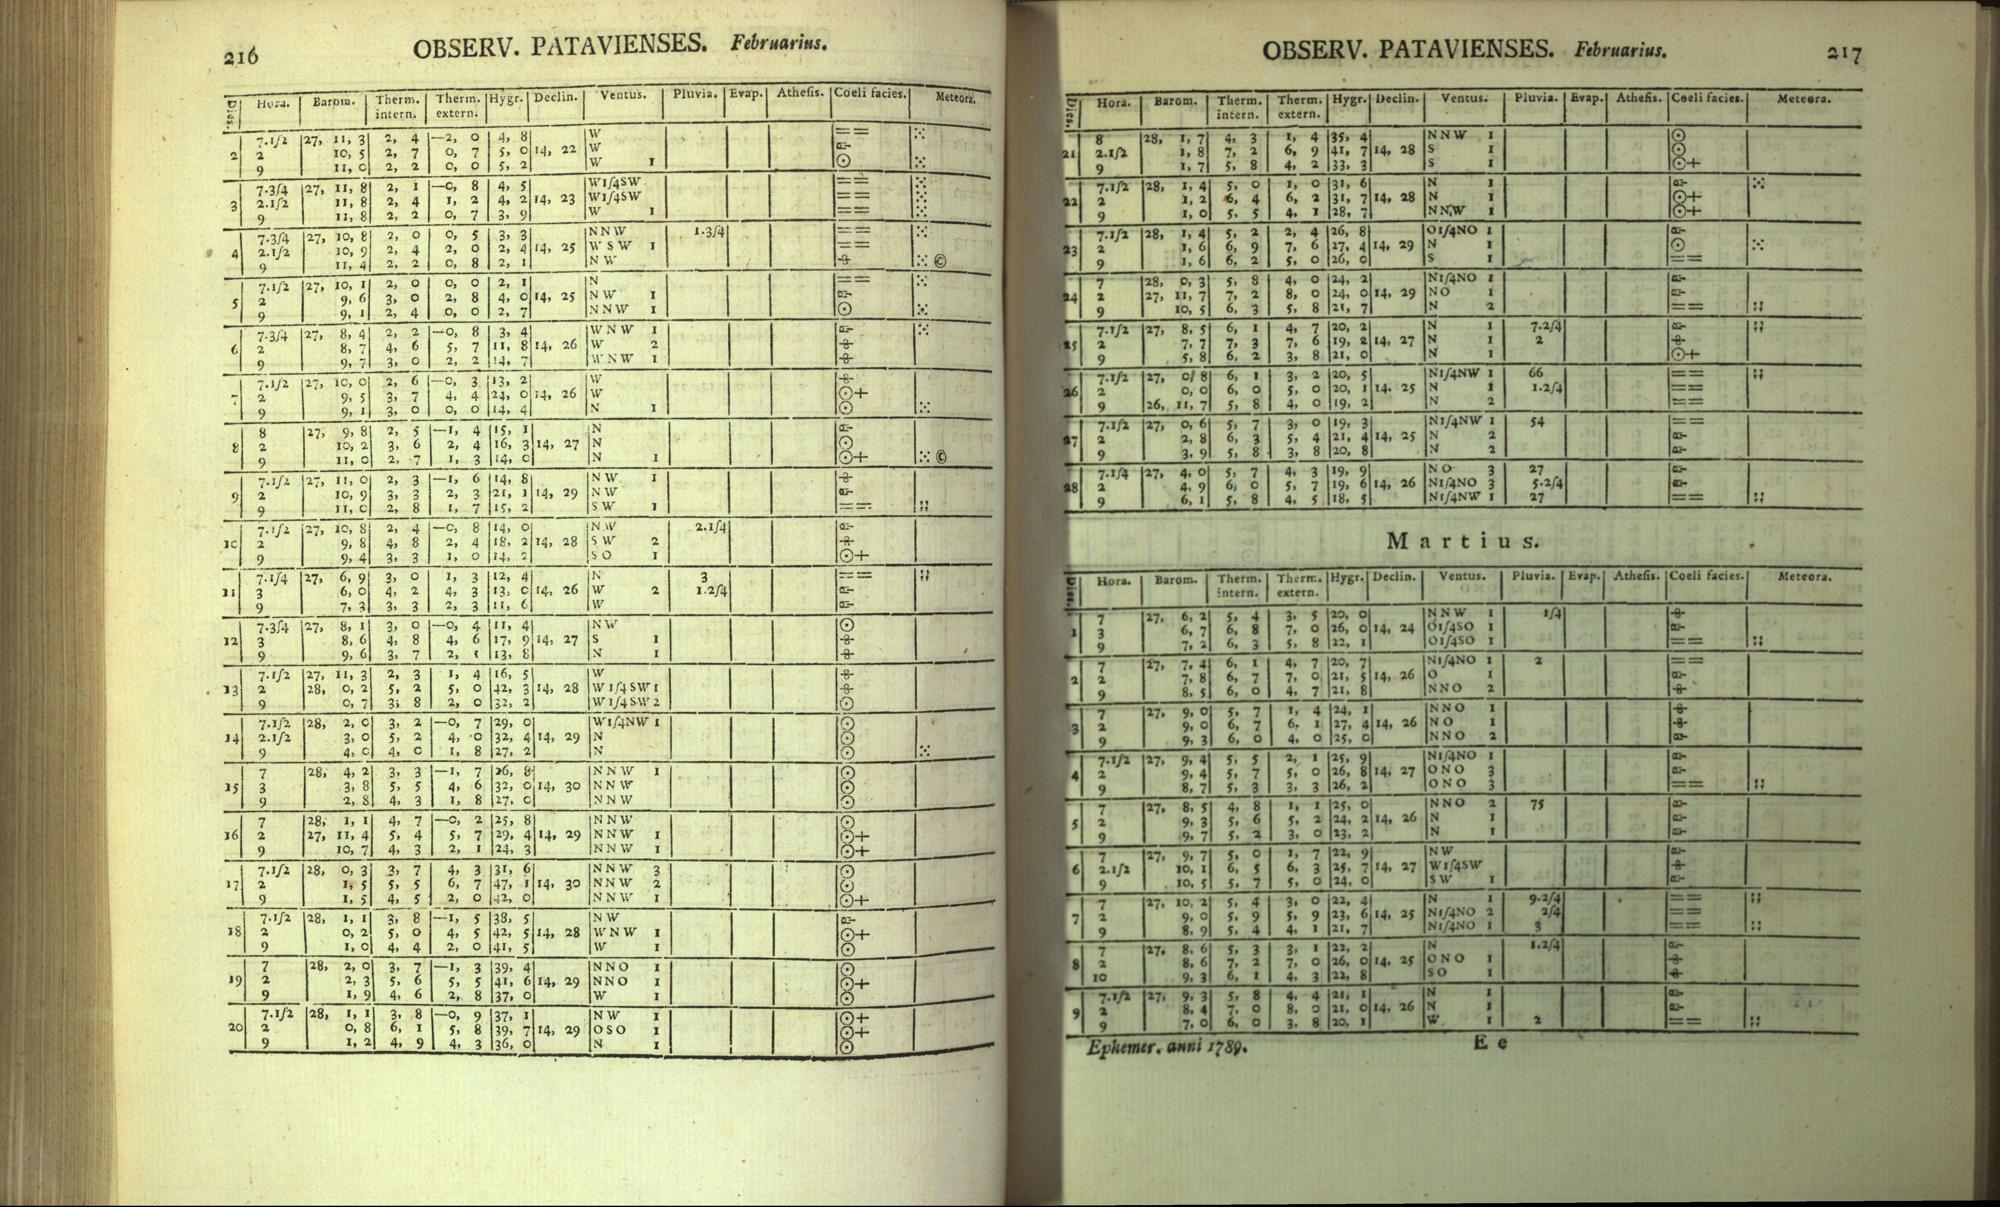 216 OBSERV. PATAVIENSES. Februarius.
Dies. Hora. Barom. Therm. intern. Therm. extern. Hygr. Declin. Ventus. Pluvia. Evap. Athesis. Coeli facies. Meteora.
7.1/2 27, 11, 3 2, 4 —2, 0 4, 8 W
2 2 10, 5 2, 7 0, 7 5, 0 14, 22 W
9 11, 0 2, 2 0, 0 5, 2 W 1
7.3/4 27, 11, 8 2, 1 —0, 8 4, 5 W1/4SW
3 2.1/2 11, 8 2, 4 1, 2 4, 2 14, 23 W1/4SW
9 11, 8 2, 2 0, 7 3, 9 W 1
7.3/4 27, 10, 8 2, 0 0, 5 3, 3 NNW 1.3/4
4 2.1/2 10, 9 2, 4 2, 0 2, 4 14, 25 WSW 1
9 11, 4 2, 2 0, 8 2, 1 NW
7.1/2 27, 10, 1 2, 0 0, 0 2, 1 N
5 2 9, 6 3, 0 2, 8 4, 0 14, 25 NW 1
9 9, 1 2, 4 0, 0 2, 7 NNW 1
7.3/4 27, 8, 4 2, 2 —0, 8 3, 4 WNW 1
6 2 8, 7 4, 6 5, 7 11, 8 14, 26 W 2
9 9, 7 3, 0 2, 2 14, 7 WNW 1
7.1/2 27, 10, 0 2, 6 —0, 3 13, 2 W
7 2 9, 5 3, 7 4, 4 24, 0 14, 26 W
9 9, 1 3, 0 0, 0 14, 4 N 1
8 27, 9, 8 2, 5 —1, 4 15, 1 N
8 2 10, 2 3, 6 2, 4 16, 3 14, 27 N
9 11, 0 2, 7 1, 3 14, 0 N 1
7.1/2 27, 11, 0 2, 3 —1, 6 14, 8 NW 1
9 2 10, 9 3, 3 2, 3 21, 1 14, 29 NW
9 11, 0 2, 8 1, 7 15, 2 SW 1
7.1/2 27, 10, 8 2, 4 —0, 8 14, 0 NW 2.1/4
10 2 9, 8 4, 8 2, 4 18, 2 14, 28 SW 2
9 9, 4 3, 3 1, 0 14, 2 SO 1
7.1/4 27, 6, 9 3, 0 1, 3 12, 4 N 3
11 3 6, 0 4, 2 4, 3 13, 0 14, 26 W 2 1.2/4
9 7, 3 3, 3 2, 3 11, 6 W
7.3/4 27, 8, 1 3, 0 —0, 4 11, 4 NW
12 3 8, 6 4, 8 4, 6 17, 9 14, 27 S 1
9 9, 6 3, 7 2, 13, 8 N 1
7.1/2 27, 11, 3 2, 3 1, 4 16, 5 W
13 2 28, 0, 2 5, 2 5, 0 42, 3 14, 28 W1/4SW 1
9 0, 7 3, 8 2, 0 32, 2 W1/4SW 2
7.1/2 28, 2, 0 3, 2 —0, 7 29, 0 W1/4NW 1
14 2.1/2 3, 0 5, 2 4, 0 32, 4 14, 29 N
9 4, 0 4, 0 1, 8 27, 2 N
7 28, 4, 2 3, 3 —1, 7 26, 8 NNW 1
15 3 3, 8 5, 5 4, 6 32, 0 14, 30 NNW
9 2, 8 4, 3 1, 8 27, 0 NNW
7 28, 1, 1 4, 7 —0, 2 25, 8 NNW
16 2 27, 11, 4 5, 4 5, 7 29, 4 14, 29 NNW 1
9 10, 7 4, 3 2, 1 24, 3 NNW 1
7.1/2 28, 0, 3 3, 7 4, 3 31, 6 NNW 3
17 2 1, 5 5, 5 6, 7 47, 1 14, 30 NNW 2
9 1, 5 4, 5 2, 0 42, 0 NNW 1
7.1/2 28, 1, 1 3, 8 —1, 5 38, 5 NW
18 2 0, 2 5, 0 4, 5 42, 5 14, 28 WNW 1
9 1, 0 4, 4 2, 0 41, 5 W 1
7 28, 2, 0 3, 7 —1, 3 39, 4 NNO 1
19 2 2, 3 5, 6 5, 5 41, 6 14, 29 NNO 1
9 1, 9 4, 6 2, 8 37, 0 W 1
7.1/2 28, 1, 1 3, 8 —0, 9 37, 1 NW 1
20 2 0, 8 6, 1 5, 8 39, 7 14, 29 OSO 1
9 1, 2 4, 9 4, 3 36, 0 N 1
OBSERV. PATAVIENSES. Februarius. 217
Dies. Hora. Barom. Therm. intern. Therm. extern. Hygr. Declin. Ventus. Pluvia. Evap. Athesis. Coeli facies. Meteora.
8 28, 1, 7 4, 3 1, 4 35, 4 NNW 1
21 2.1/2 1, 8 7, 2 6, 9 41, 7 14, 28 S 1
9 1, 7 5, 8 4, 2 33, 3 S 1
7.1/2 28, 1, 4 5, 0 1, 0 31, 6 N 1
22 2 1, 2 6, 4 6, 2 31, 7 14, 28 N 1
9 1, 0 5, 5 4, 1 28, 7 NNW 1
7.1/2 28, 1, 4 5, 2 2, 4 26, 8 O1/4NO 1
23 2 1, 6 6, 9 7, 6 27, 4 14, 29 N 1
9 1, 6 6, 2 5, 0 26, 0 S 1
7 28, 0, 3 5, 8 4, 0 24, 2 N1/4NO 1
24 2 27, 11, 7 7, 2 8, 0 24, 0 14, 29 NO 1
9 10, 5 6, 3 5, 8 21, 7 N 2
7.1/2 27, 8, 5 6, 1 4, 7 20, 2 N 1 7.2/4
25 2 7, 7 7, 3 7, 6 19, 2 14, 27 N 1 2
9 5, 8 6, 2 3, 8 21, 0 N 1
7.1/2 27, 0/ 8 6, 1 3, 2 20, 5 N1/4NW 1 66
26 2 0, 0 6, 0 5, 0 20, 1 14, 25 N 1 1.2/4
9 26, 11, 7 5, 8 4, 0 19, 2 N 2
7.1/2 27, 0, 6 5, 7 3, 0 19, 3 N1/4NW 1 54
27 2 2, 8 6, 3 5, 4 21, 4 14, 25 N 2
9 3, 9 5, 8 3, 8 20, 8 N 2
7.1/4 27, 4, 0 5, 7 4, 3 19, 9 NO 3 27
28 2 4, 9 6, 0 5, 7 19, 6 14, 26 N1/4NO 3 5.2/4
9 6, 1 5, 8 4, 5 18, 5 N1/4NW 1 27
Martius.
Dies. Hora. Barom. Therm. intern. Therm. extern. Hygr. Declin. Ventus. Pluvia. Evap. Athesis. Coeli facies. Meteora.
7 27, 6, 2 5, 4 3, 5 20, 0 NNW 1 1/4
1 3 6, 7 6, 8 7, 0 26, 0 14, 24 O1/4SO 1
9 7, 2 6, 3 5, 8 22, 1 O1/4SO 1
7 27, 7, 4 6, 1 4, 7 20, 7 N1/4NO 1 2
2 2 7, 8 6, 7 7, 0 21, 5 14, 26 O 1
9 8, 5 6, 0 4, 7 21, 8 NNO 2
7 27, 9, 0 5, 7 1, 4 24, 1 NNO 1
3 2 9, 0 6, 7 6, 1 27, 4 14, 26 NO 1
9 9, 3 6, 0 4, 0 25, 0 NNO 2
7.1/2 27, 9, 4 5, 5 2, 1 25, 9 N1/4NO 1
4 2 9, 4 5, 7 5, 0 26, 8 14, 27 ONO 3
9 8, 7 5, 3 3, 3 26, 2 ONO 3
7 27, 8, 5 4, 8 1, 1 25, 0 NNO 2 75
5 2 9, 3 5, 6 5, 2 24, 2 14, 26 N 1
9 9, 7 5, 2 3, 0 23, 2 N 1
7 27, 9, 7 5, 0 1, 7 22, 9 NW
6 2.1/2 10, 1 6, 5 6, 3 25, 7 14, 27 W1/4SW
9 10, 5 5, 7 5, 0 24, 0 SW 1
7 27, 10, 2 5, 4 3, 0 22, 4 N 1 9.2/4
7 2 9, 0 5, 9 5, 9 23, 6 14, 25 N1/4NO 2 2/4
9 8, 9 5, 4 4, 1 21, 7 N1/4NO 1 3
7 27, 8, 6 5, 3 3, 1 22, 2 N 1.2/4
8 2 8, 6 7, 2 7, 0 26, 0 14, 25 ONO 1
10 9, 3 6, 1 4, 3 22, 8 SO 1
7.1/2 27, 9, 3 5, 8 4, 4 21, 1 N 1
9 2 8, 4 7, 0 8, 0 21, 0 14, 26 N 1
9 7, 0 6, 0 3, 8 20, 1 W 1 2
Ephemer. anni 1789. E e